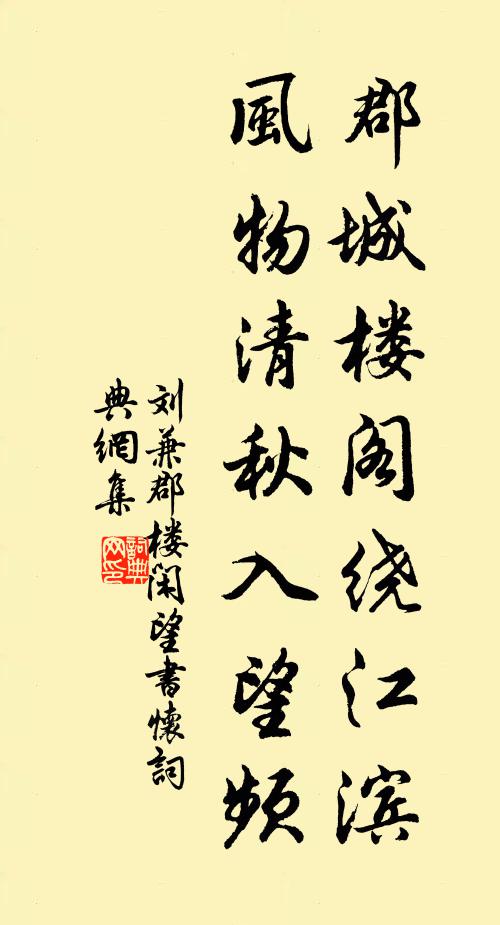 郡城楼阁绕江滨
風物清秋入望频
刘兼郡楼闲望書懷詞
典網集
詞典网印